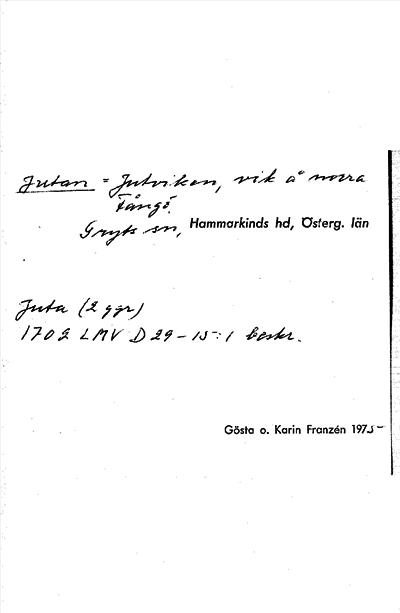 Jutan = Jutviken, vik å norra
Fångö.
Gryts sn, Hammarkinds hd, Österg. län
Juta (2 ggr)
1702 LMV D 29-15:1 beskr.
Gösta o. Karin Franzén 1975